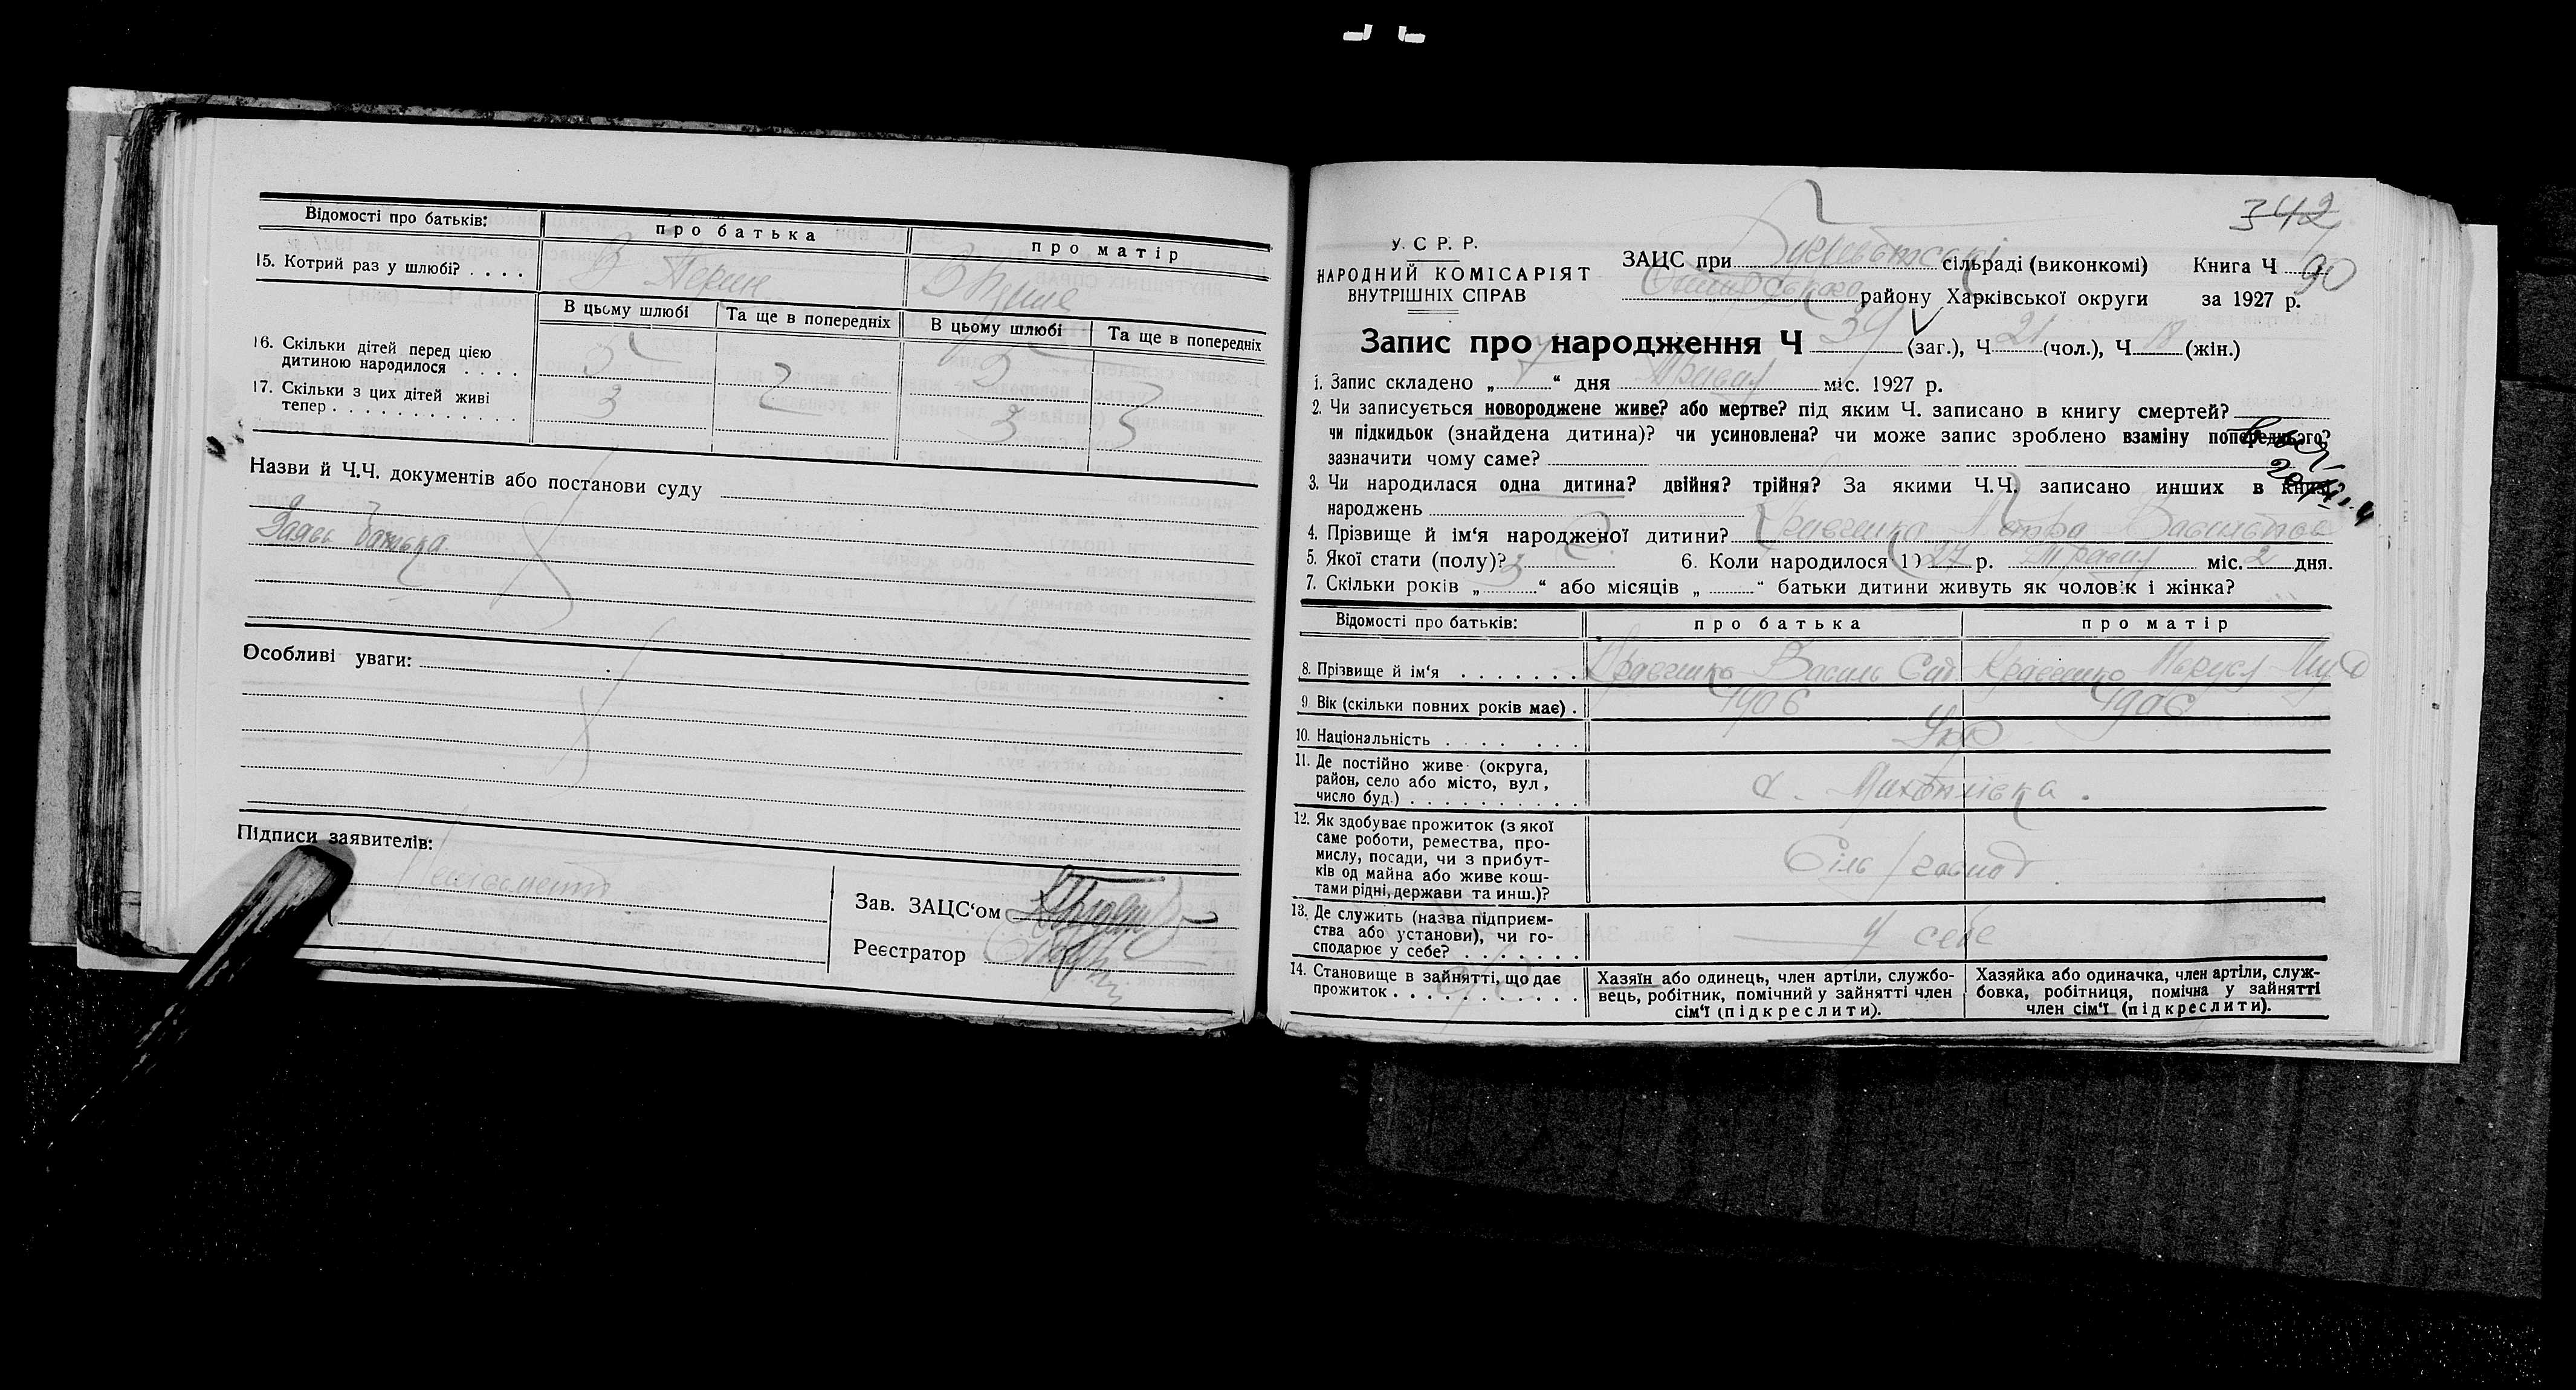 Відомості про батьків:
про батька
про матір
15. Котрий раз у шлюбі? . . . .
В цьому шлюбі
Та ще в попередніх
В цьому шлюбі
Та ще в попередніх
16. Скільки дітей перед цією
дитиною народилося . . . .
17. Скільки з цих дітей живі
тепер . . . . . . . . . . . .
3
2
3
3
Назви й Ч.Ч. документів або постанови суду
Заява батька
Особливі уваги:
Підписи заявителів:
Зав. ЗАЦС‘ом
Реєстратор
342
У. С. Р. Р.
НАРОДНИЙ КОМІСАРІЯТ
ВНУТРІШНІХ СПРАВ
ЗАЦС при сільраді (виконкомі) Книга Ч 90
району Харківської округи за 1927 р.
Запис про народження Ч 39 (заг.), Ч 21 (чол.), Ч 18 (жін.)
1. Запис складено „ “ дня Травня міс. 1927 р.
2. Чи записується новороджене живе? або мертве? під яким Ч. записано в книгу смертей?
чи підкидьок (знайдена дитина)? чи усиновлена? чи може запис зроблено взаміну попереднього?
зазначити чому саме?
3. Чи народилася одна дитина? двійня? трійня? За якими Ч.Ч. записано инших в книзі
народжень
4. Прізвище й ім‘я народженої дитини? Кравченко Петро
5. Якої стати (полу)? 6. Коли народилося 1) 27 р. Травня міс. 2 дня.
7. Скільки років „ 3 “ або місяців „ “ батьки дитини живуть як чоловік і жінка?
Відомості про батьків:
про батька
про матір
8. Прізвище й ім‘я . . . . . . .
Кравченко Василь
Кравченко
9. Вік (скільки повних років має) .
1906
1906
10. Національність . . . . . . .
Укр
11. Де постійно живе (округа,
район, село або місто, вул.,
число буд.) . . . . . . . . . .
12. Як здобуває прожиток (з якої
саме роботи, ремества, про-
мислу, посади, чи з прибут-
ків од майна або живе кош-
тами рідні, держави та инш.)?
Сіль/господ
13. Де служить (назва підприєм-
ства або установи), чи го-
сподарює у себе? . . . . . . .
у себе
14. Становище в зайнятті, що дає
прожиток . . . . . . . . . . .
Хазяїн або одинець, член артіли, службо-
вець, робітник, помічний у зайнятті член
сім‘ї (підкреслити).
Хазяйка або одиначка, член артіли, служ-
бовка, робітниця, помічна у зайнятті
член сім‘ї (підкреслити).